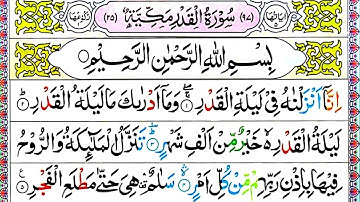 اٰيَاتُهَا ٥ (٩٧) سُوْرَةُ الْقَدْرِ مَكِّيَّةٌ (٢٥) رُكُوْعُهَا ١
بِسْمِ اللّٰهِ الرَّحْمٰنِ الرَّحِيْمِ
اِنَّاۤ اَنْزَلْنٰهُ فِيْ لَيْلَةِ الْقَدْرِ ۝١ وَمَاۤ اَدْرٰىكَ مَا لَيْلَةُ الْقَدْرِ ۝٢
لَيْلَةُ الْقَدْرِ ۙ خَيْرٌ مِّنْ اَلْفِ شَهْرٍ ۝٣ تَنَزَّلُ الْمَلٰٓىِٕكَةُ وَالرُّوْحُ
فِيْهَا بِاِذْنِ رَبِّهِمْ ۚ مِّنْ كُلِّ اَمْرٍ ۝٤ سَلٰمٌ ۛ هِيَ حَتّٰى مَطْلَعِ الْفَجْرِ ۝٥